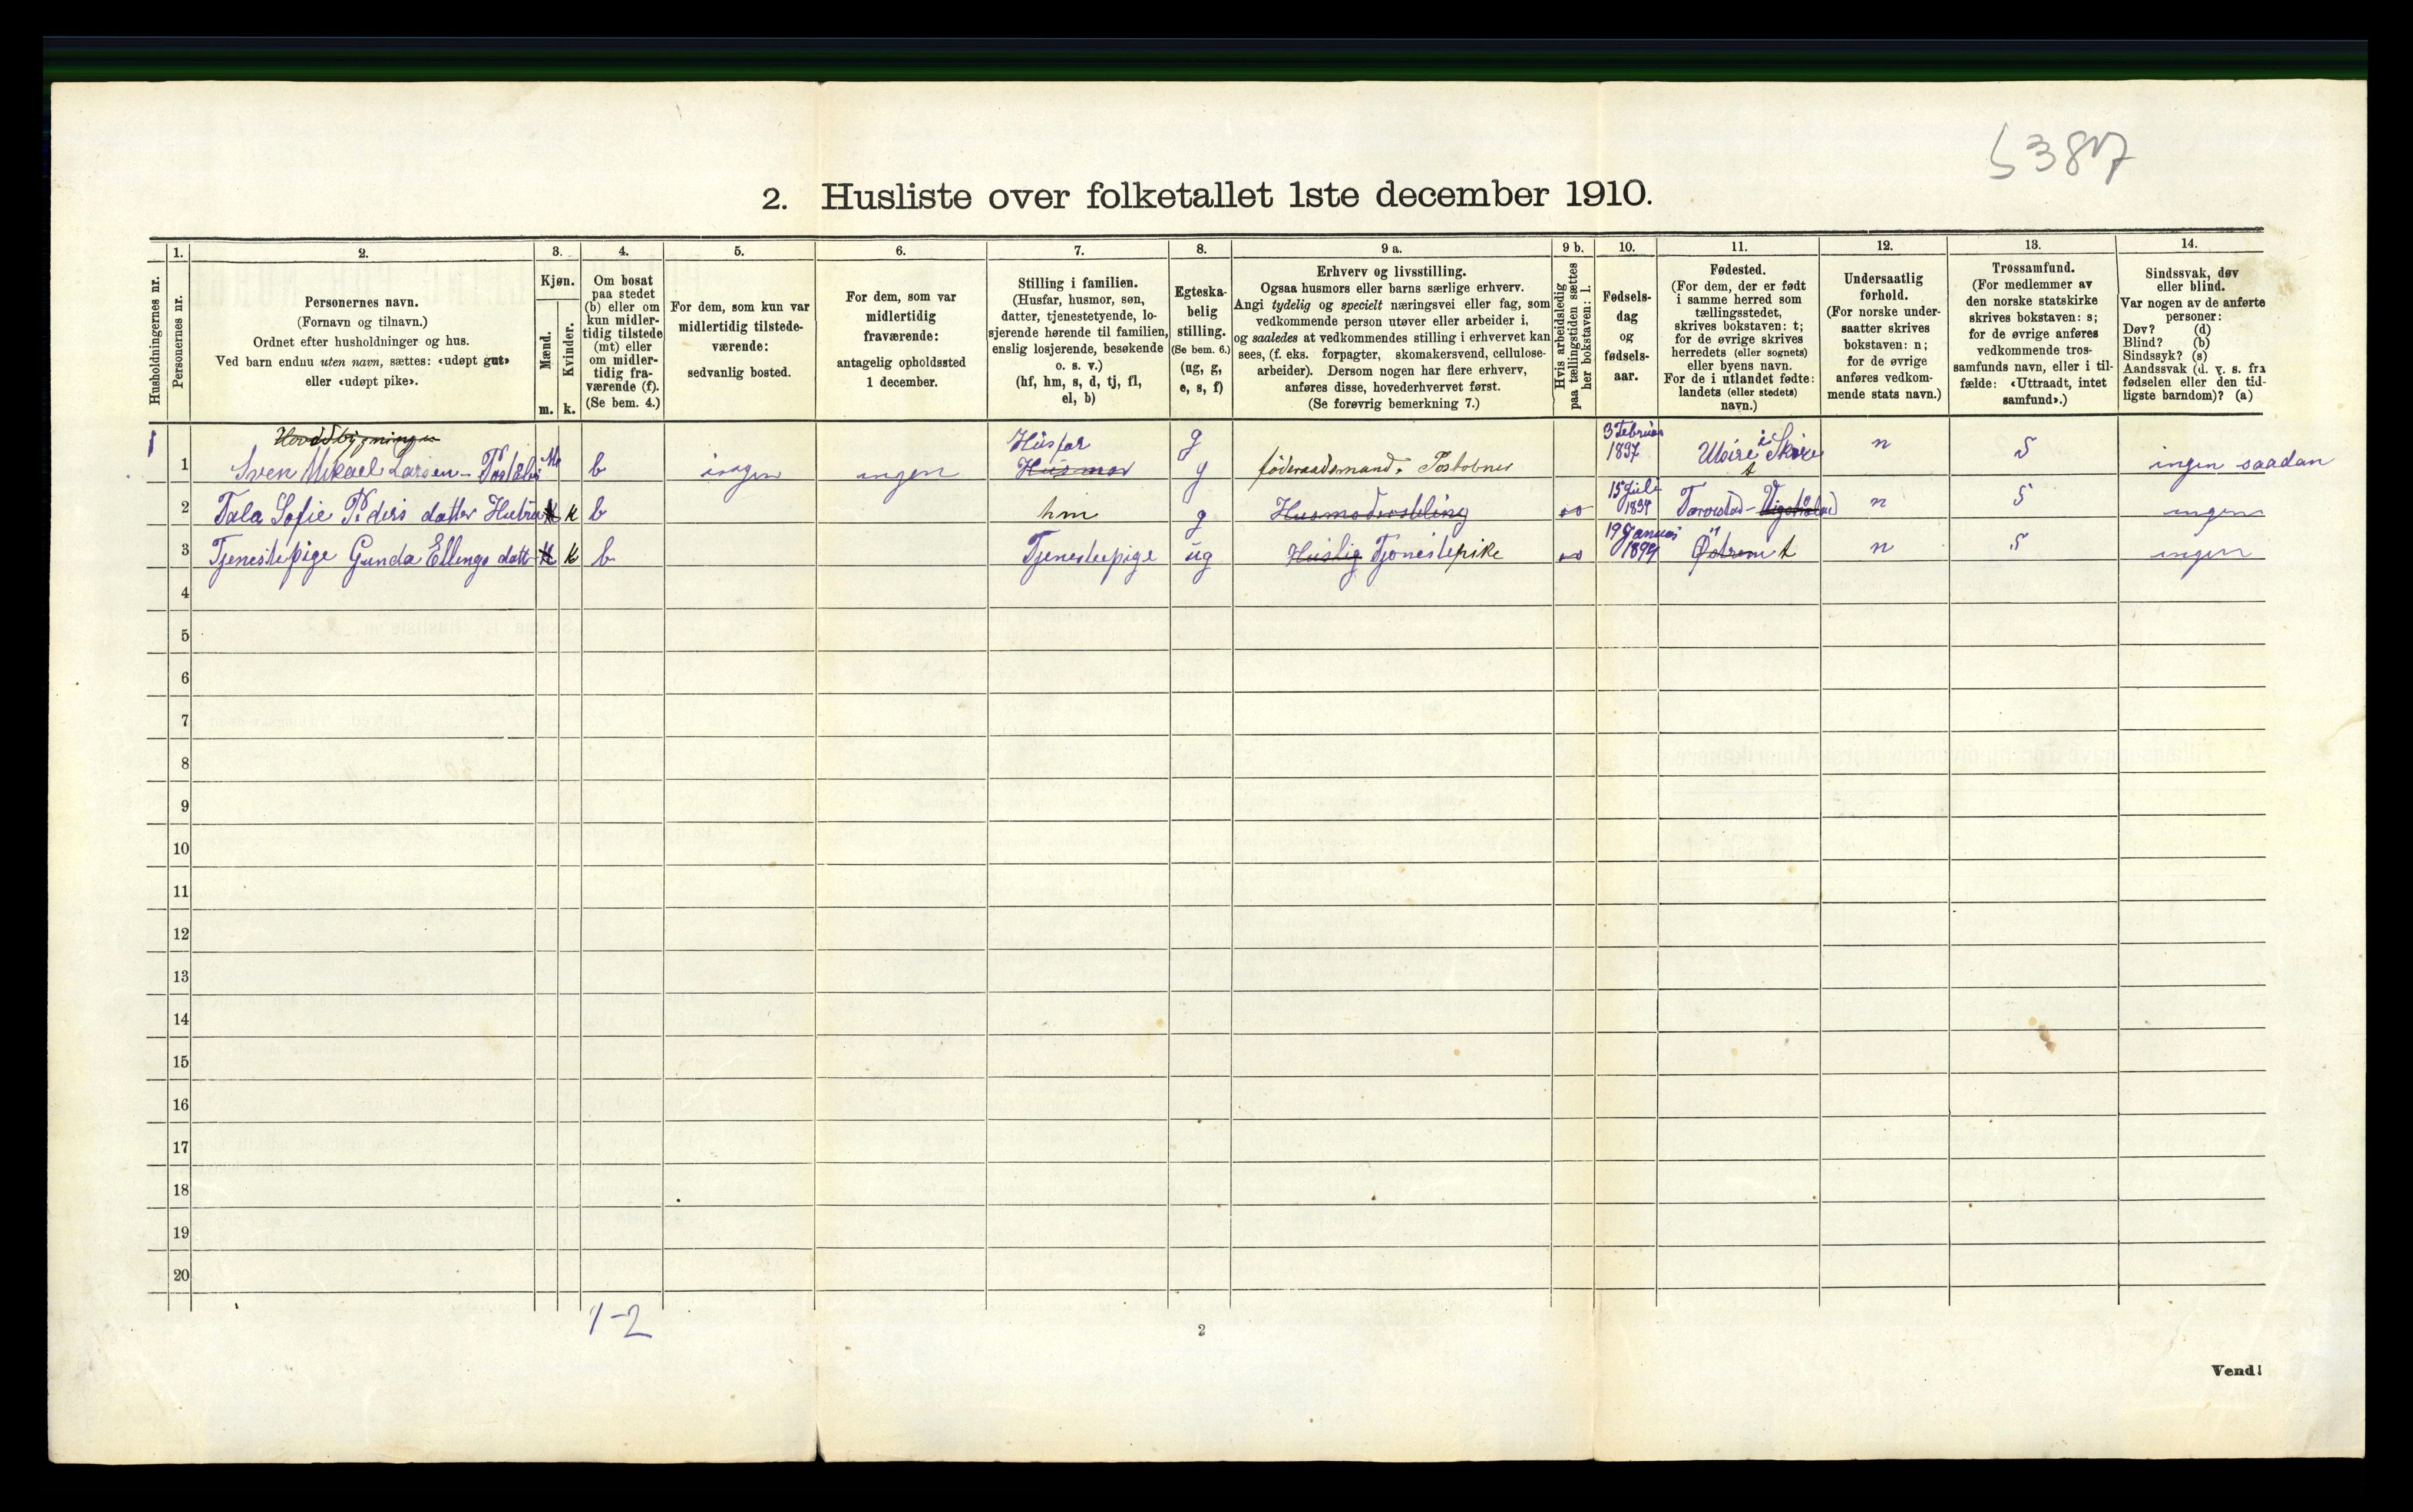 5387
2. Husliste over folketallet 1ste december 1910.
1. 2. 3. 4. 5. 6. 7. 8. 9 a. 9 b. 10. 11. 12. 13. 14.
Husholdningernes nr.
Personernes nr.
Personernes navn.
(Fornavn og tilnavn.)
Ordnet efter husholdninger og hus.
Ved barn endnu uten navn, sættes: «udøpt gut»
eller «udøpt pike».
Kjøn.
Mænd.
Kvinder.
m. k.
Om bosat
paa stedet
(b) eller om
kun midler-
tidig tilstede
(mt) eller
om midler-
tidig fra-
værende (f).
(Se bem. 4.)
For dem, som kun var
midlertidig tilstede-
værende:
sedvanlig bosted.
For dem, som var
midlertidig
fraværende:
antagelig opholdssted
1 december.
Stilling i familien.
(Husfar, husmor, søn,
datter, tjenestetyende, lo-
sjerende hørende til familien,
enslig losjerende, besøkende
o. s. v.)
(hf, hm, s, d, tj, fl,
el, b)
Egteska-
belig
stilling.
(Se bem. 6.)
(ug, g,
e, s, f)
Erhverv og livsstilling.
Ogsaa husmors eller barns særlige erhverv.
Angi tydelig og specielt næringsvei eller fag, som
vedkommende person utøver eller arbeider i,
og saaledes at vedkommendes stilling i erhvervet kan
sees, (f. eks. forpagter, skomakersvend, cellulose-
arbeider). Dersom nogen har flere erhverv,
anføres disse, hovederhvervet først.
(Se forøvrig bemerkning 7.)
Hvis arbeidsledig
paa tællingstiden sættes
her bokstaven: l.
Fødsels-
dag
og
fødsels-
aar.
Fødested.
(For dem, der er født
i samme herred som
tællingsstedet,
skrives bokstaven: t;
for de øvrige skrives
herredets (eller sognets)
eller byens navn.
For de i utlandet fødte:
landets (eller stedets)
navn.)
Undersaatlig
forhold.
(For norske under-
saatter skrives
bokstaven: n;
for de øvrige
anføres vedkom-
mende stats navn.)
Trossamfund.
(For medlemmer av
den norske statskirke
skrives bokstaven: s;
for de øvrige anføres
vedkommende tros-
samfunds navn, eller i til-
fælde: «Uttraadt, intet
samfund».)
Sindssvak, døv
eller blind.
Var nogen av de anførte
personer:
Døv? (d)
Blind? (b)
Sindssyk? (s)
Aandssvak (d. v. s. fra
fødselen eller den tid-
ligste barndom)? (a)
1 Hovedbygningen Husfar g 3 Februar
1 Sven Mikael Larsen b ingen ingen Husmor g føderaadsmand. 1837 i Skire t n S ingen saadan
2 Tala Sofie Peders datter k b hm g Husmoderstilling 15 Juli n S ingen
3 Tjenestepige Gunda Ellings datt k b Tjenestepige ug Huslig Tjenestepike 19 Januar Østrem t n S ingen
4
5
6
7
8
9
10
11
12
13
14
15
16
17
18
19
20
1-2
2
Vend!